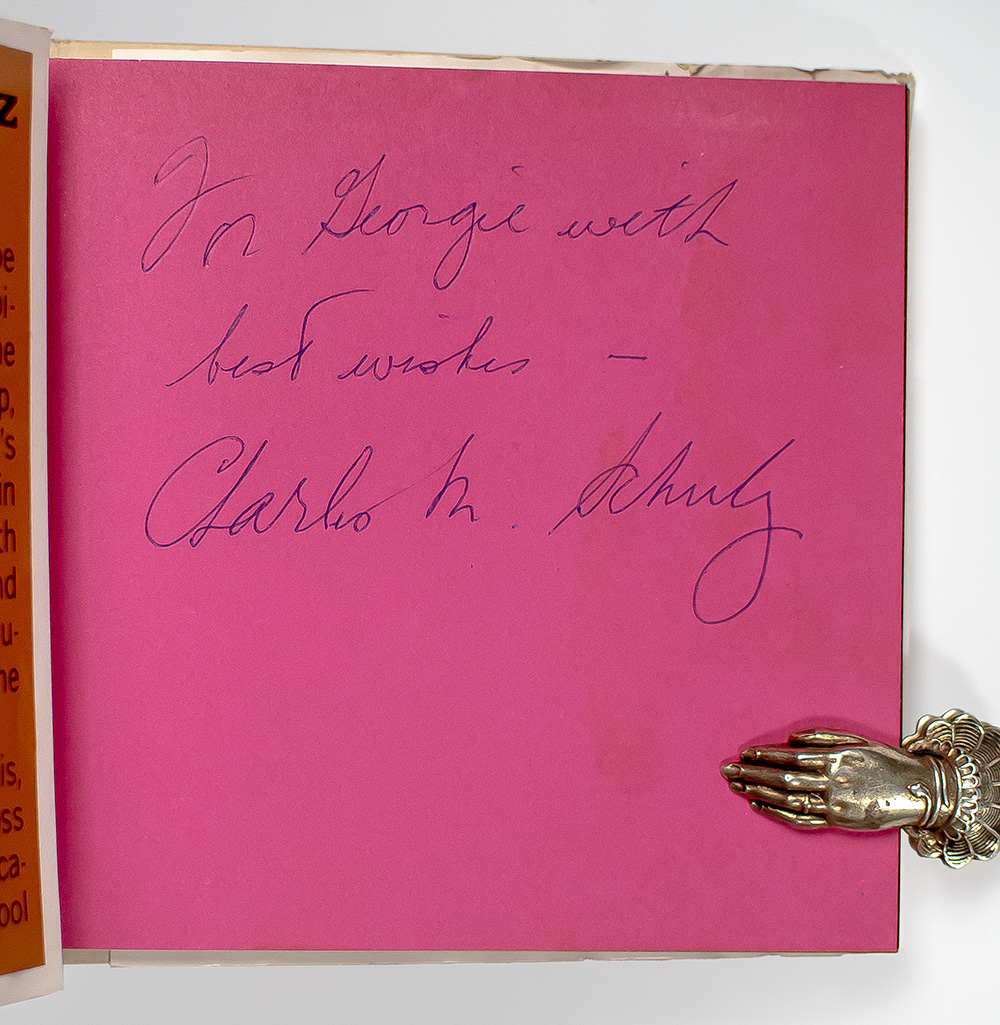 z
be
bi-
he
p,
's
in
th
nd
u-
he
is,
oss
ca-
ool
For Georgie with
best wishes —
Charles M. Schulz